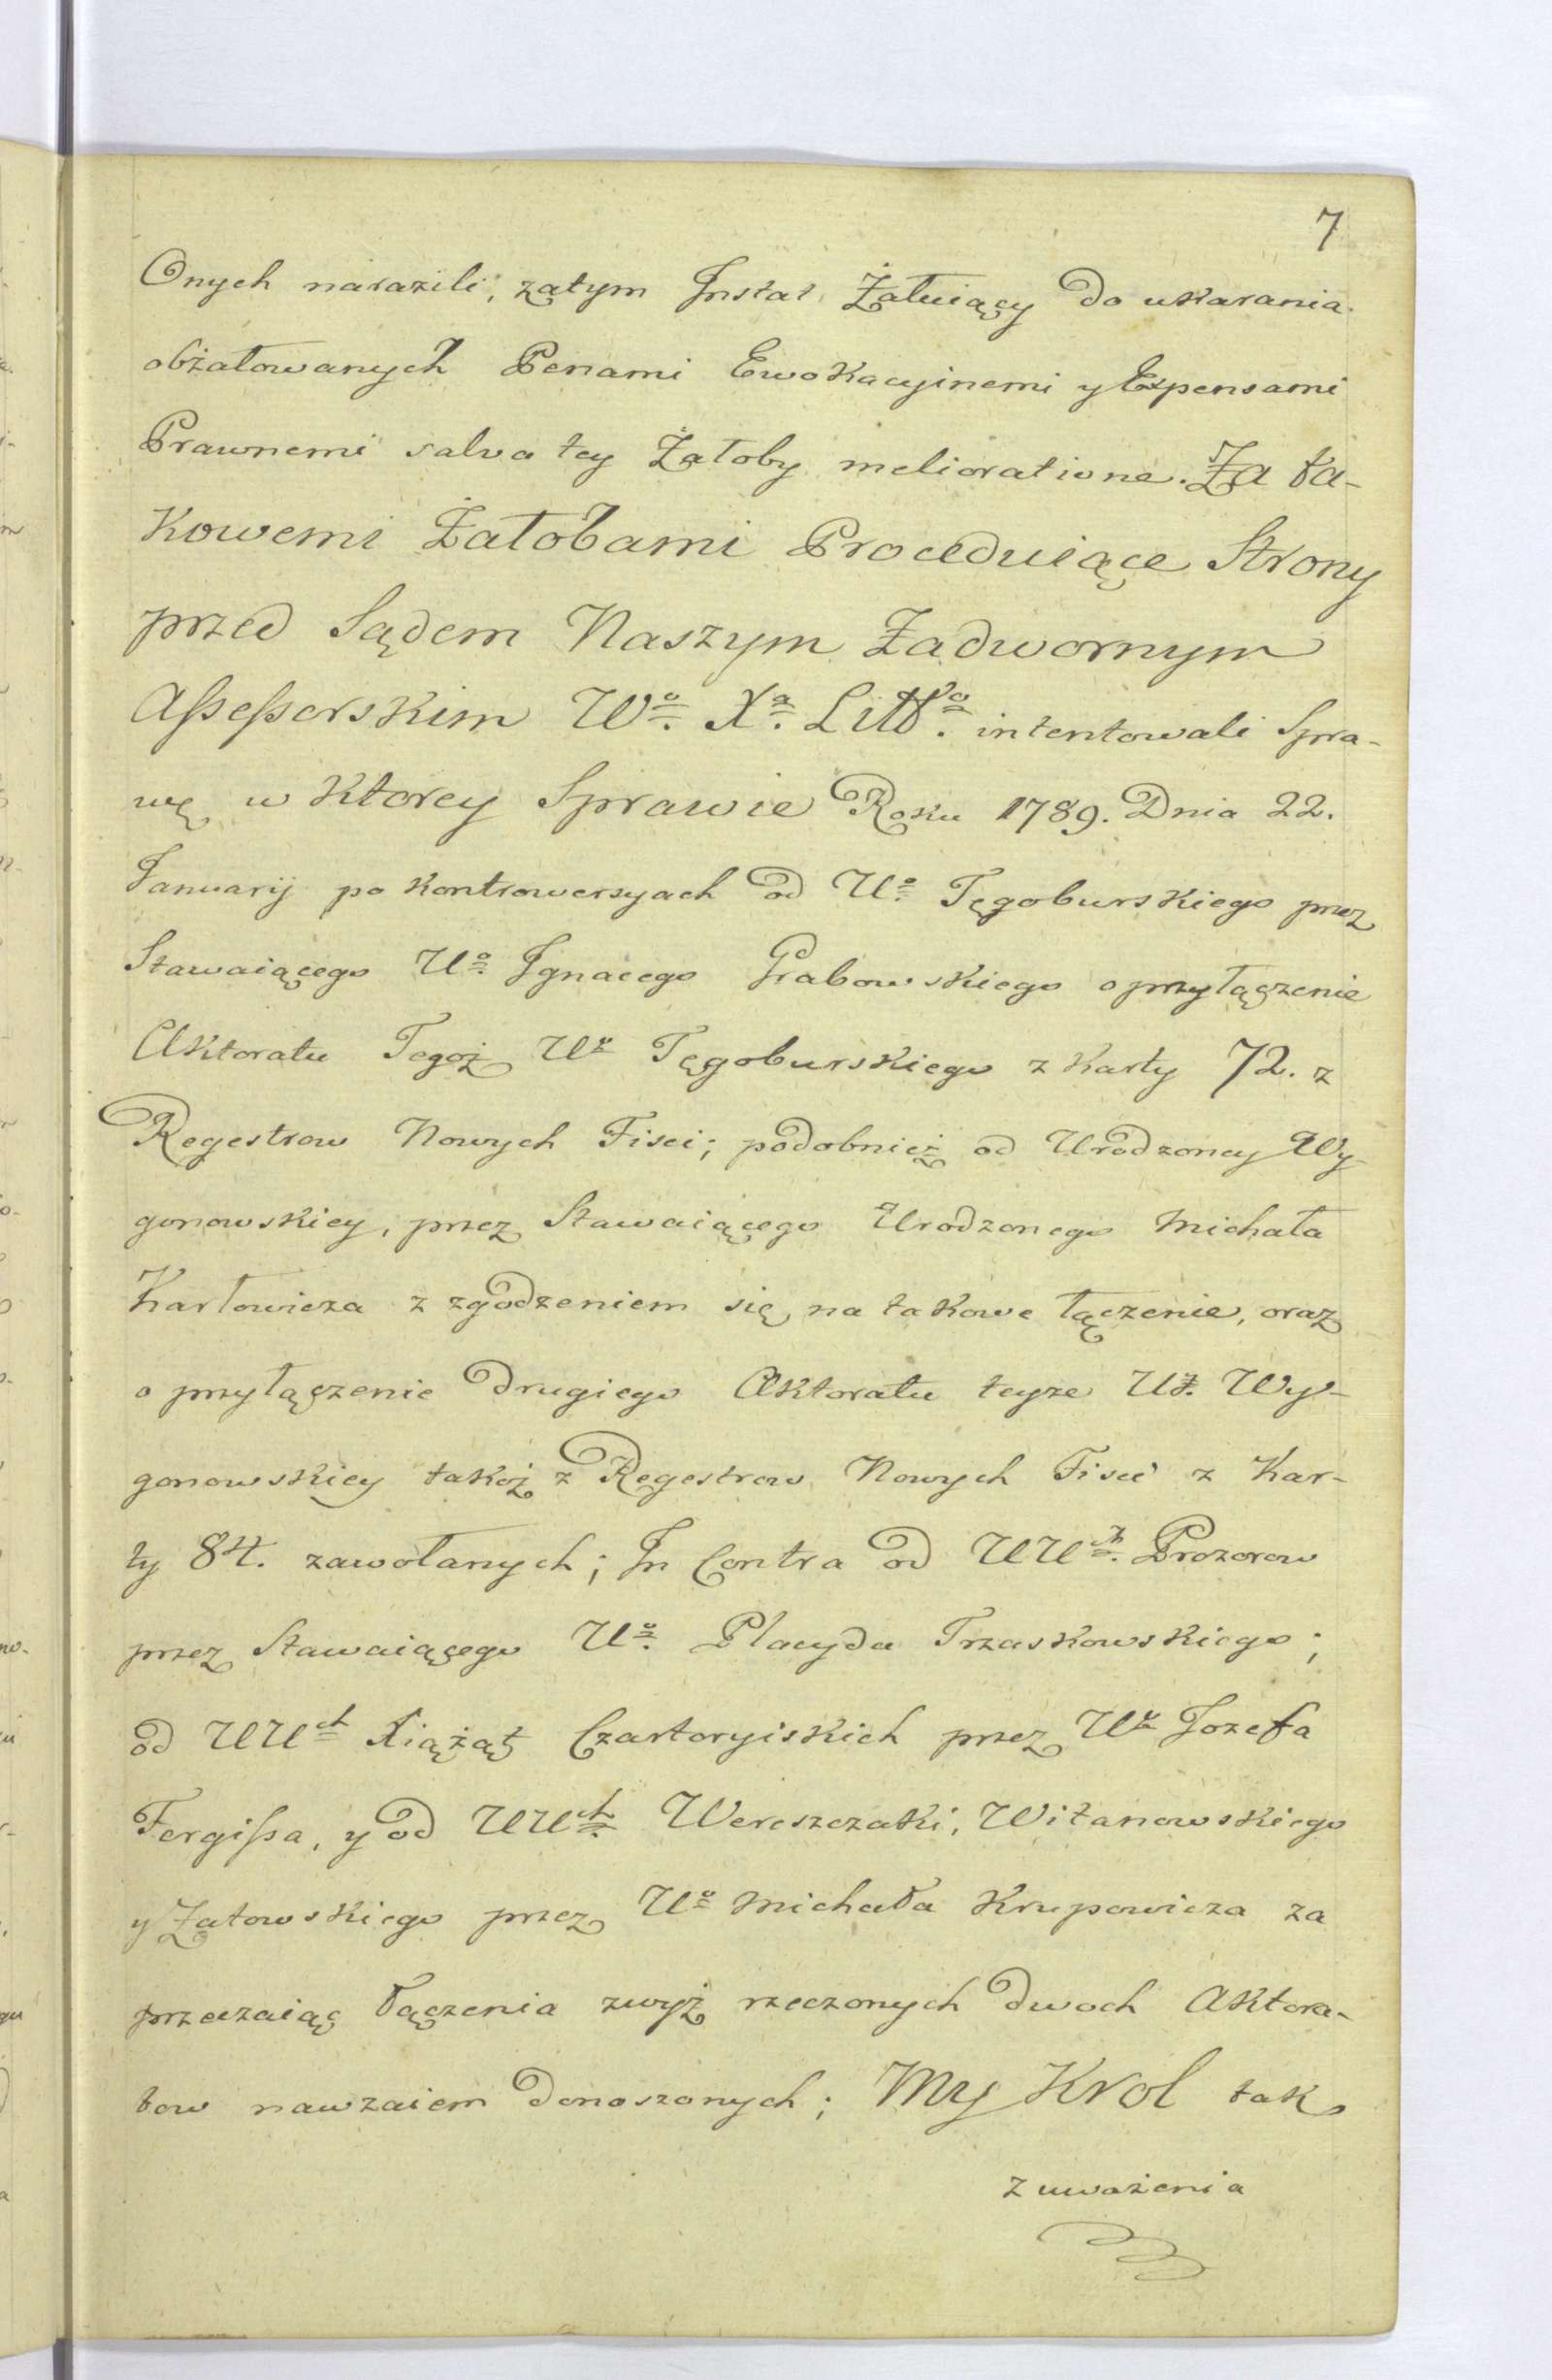 7
Onych narazili, zatym Instat. Żałuiący do ukarania
obżałowanych Penami Ewokacyinemi y Expensami
Prawnemi salva tey Żałoby melioratione. Za ta-
kowemi Żałobami Proceduiące Strony
przed Sądem Naszym Zadwornym
Assessorskim Wo. Xa. Littgo. intentowali Spra-
wę w ktorey Sprawie Roku 1789. Dnia 22.
Januarij po kontrowersyach od Uo. Tęgoburskiego przez
Stawaiącego Uo. Ignacego Grabowskiego o przyłączenie
Aktoratu Tegoż Uo Tęgoburskiego z karty 72. z
Regestrow Nowych Fisci; podobnież od Urodzoney Wy
gonowskiey, przez Stawaiącego Urodzonego Michała
Karłowicza z zgodzeniem się na takowe łączenie, oraz
o przyłączenie drugiego Aktoratu teyże Ur. Wy-
gonowskiey takoż z Regestrow Nowych Fisci z Kar-
ty 84. zawołanych; In Contra od UUch. Prozorow
przez Stawaiącego Uo. Placyda Trzaskowskiego;
od UUch Xiążąt Czartoryiskich przez Uo Jozefa
Fergissa, y od UUch. Wereszczaki, Witanowskiego
y Załowskiego przez Uo Michała Krupowicza za
przeczaiąc łączenia zwyż rzeczonych dwoch Aktora-
tow nawzaiem donoszonych; My Krol tak
z uważenia